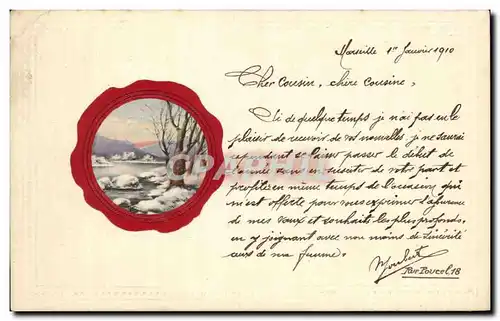 Marseille 1er Janvier 1910
Cher Cousin, chère Cousine,
Si de quelque temps je n'ai pas eu le
plaisir de recevoir de vos nouvelles je ne saurai
cependant laisser passer le début de
l'année sans en de votre part et
profite en même temps de l'occasion qui
m'est offerte pour vous exprimer l'assurance
de mes vœux et souhaits les plus profonds,
en y joignant avec non moins de sincérité
ceux de ma femme.
Rue Poucel, 18